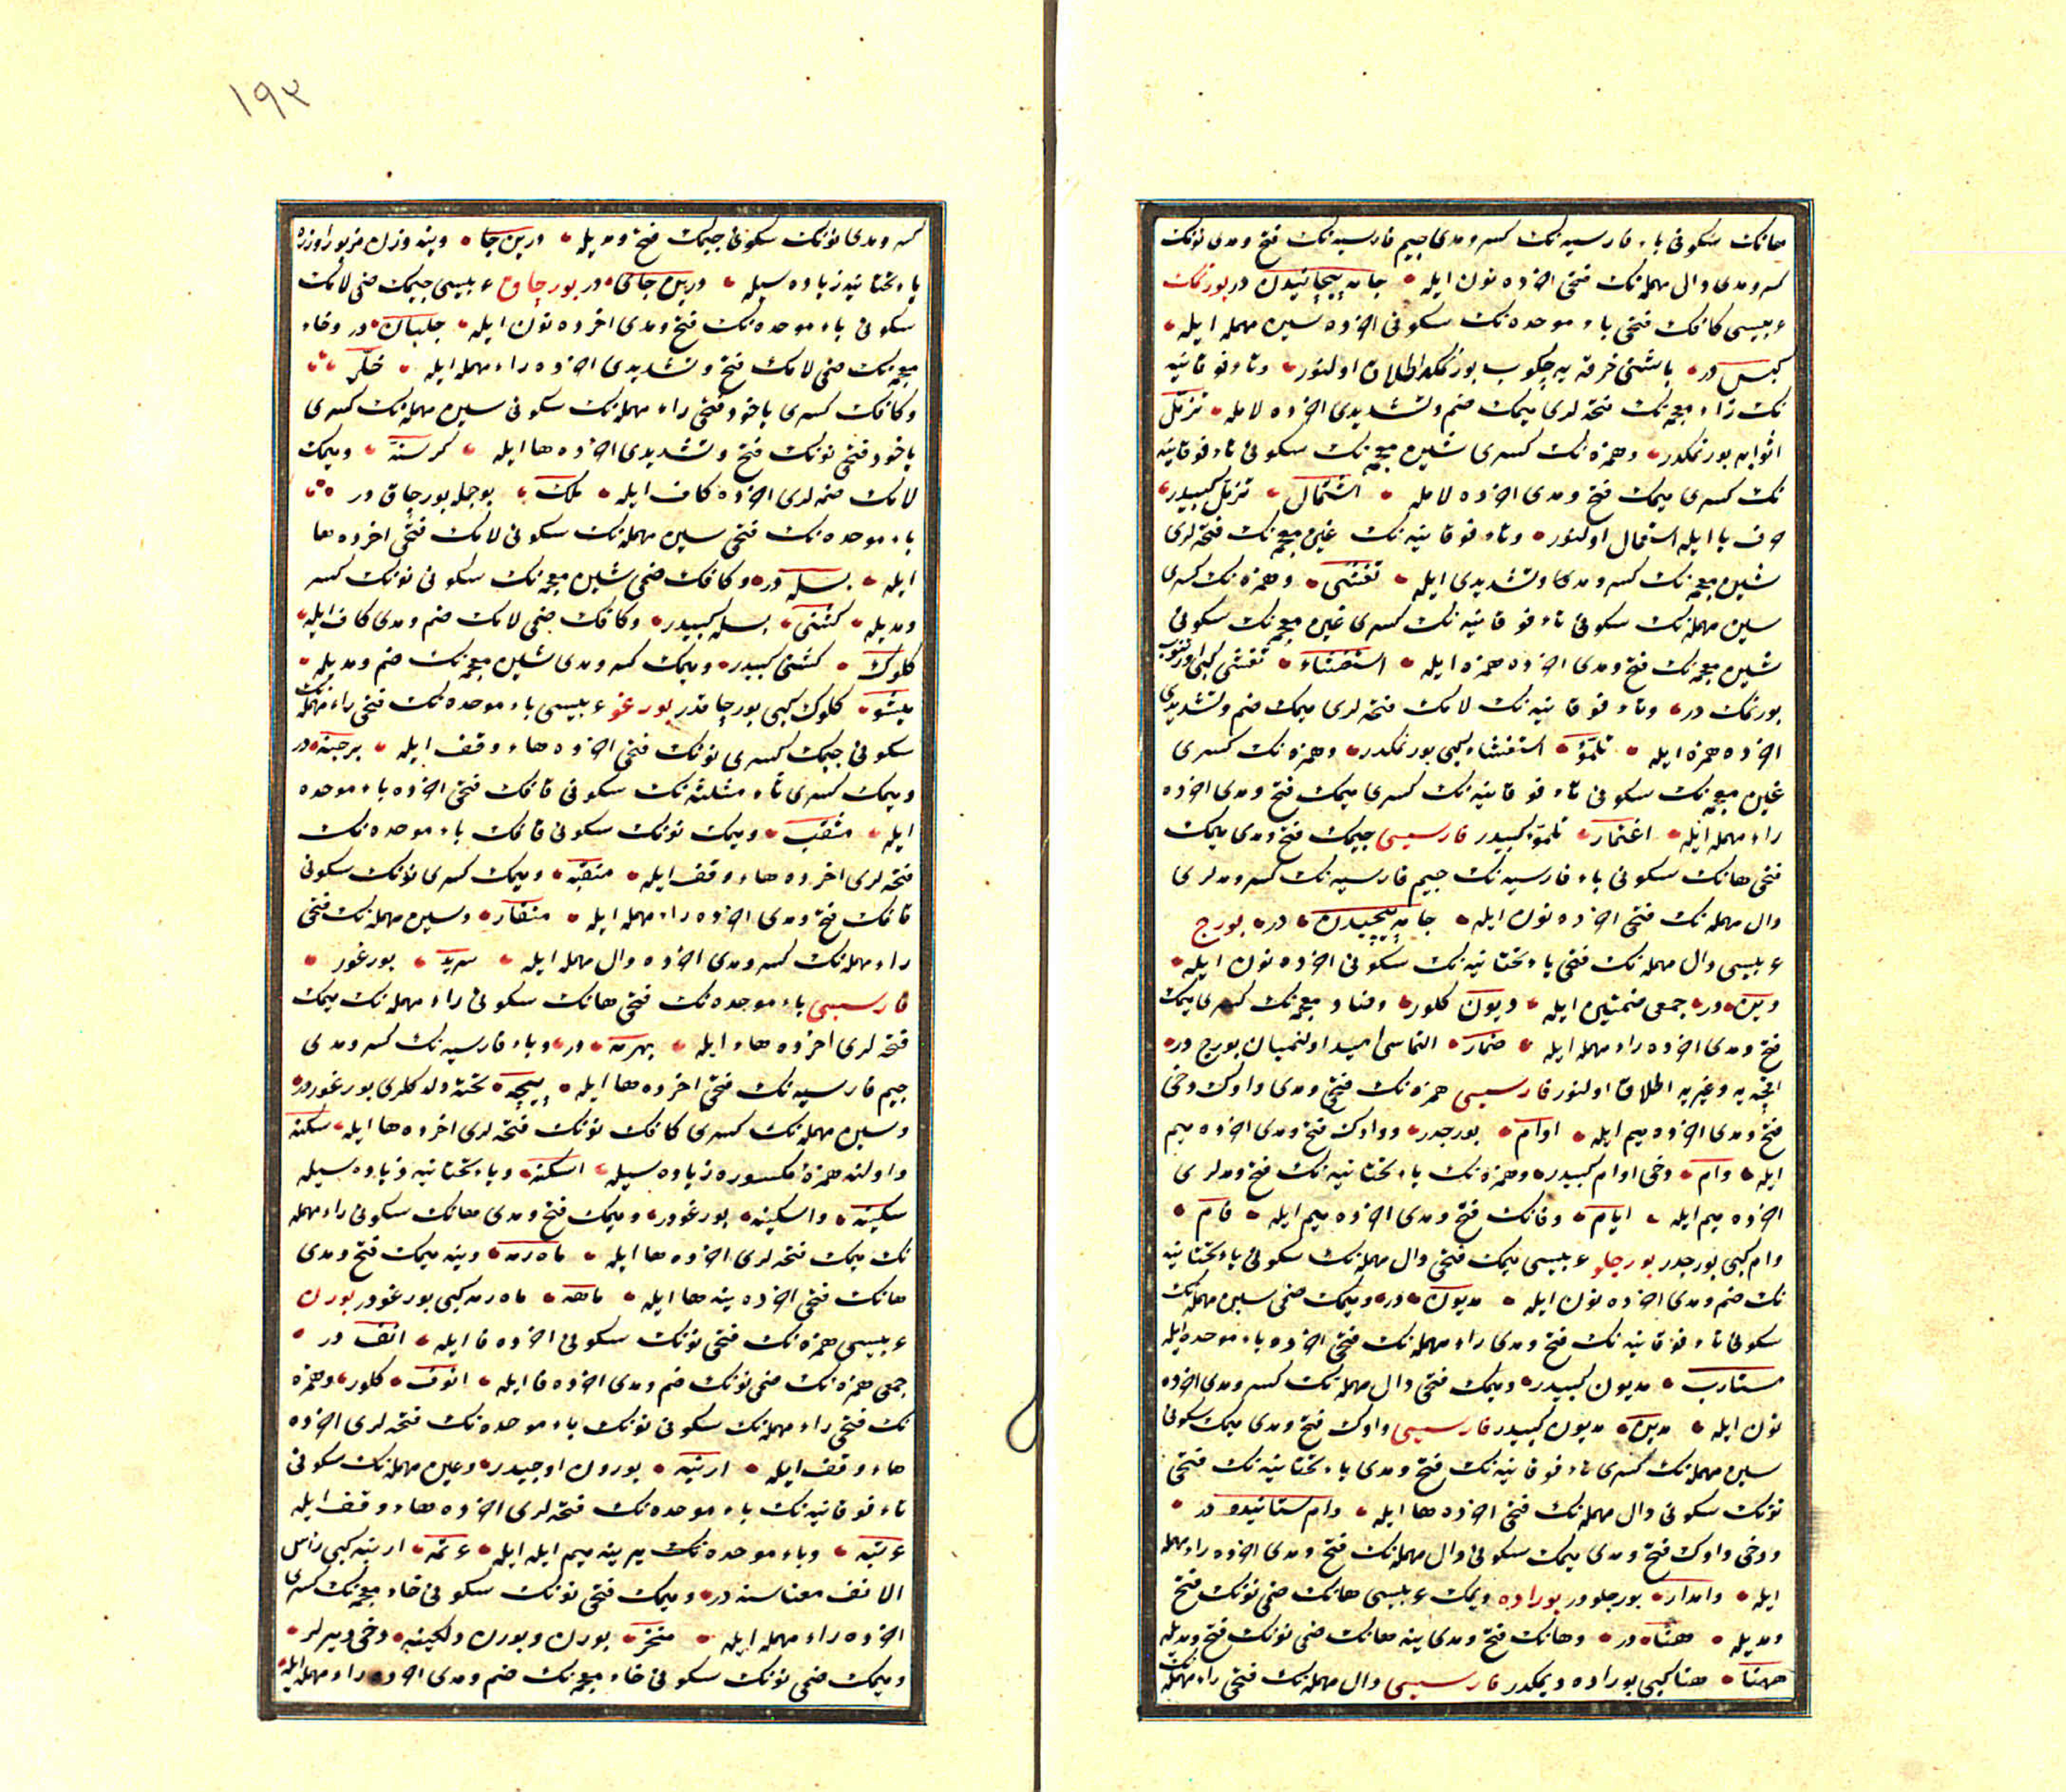 هانك سكونی باء فارسیه نك كسر و مدی جیم فارسیه نك فتح و مدی نونك
كسر و مدی دال مهمله نك فتحی اخرده نون ایله جامه پیچانیدن در بورنمك
عربیسی كافك فتحی باء موحده نك سكونی اخرده سین مهمله ایله
كبس در باشنی خرقه یه چكوب بورنمكه اطلاق اولنور و تاء فوقانیه
نك زاء معجمه نك فتحه لری میمك ضم و تشدیدی اخرده لامله تزمّل
اثوابه بورنمكدر و همزه نك كسری شین معجمه نك سكونی تاء فوقانیه
نك كسری میمك فتح و مدی اخرده لامله اشتمال تزمّل كبیدر
حرف با ایله استعمال اولنور و تاء فوقانیه نك غین معجمه نك فتحه لری
شین معجمه نك كسر و مدی و تشدیدی ایله تغشّی و همزه نك كسری
سین مهمله نك سكونی تاء فوقانیه نك كسری غین معجمه نك سكونی
شین معجمه نك فتح و مدی اخرده همزه ایله استغشاء تغشی كبی اورتنوب
بورنمك در و تاء فوقانیه نك لامك فتحه لری میمك ضم و تشدیدی
اخرده همزه ایله تلمّؤ استغشاء كبی بورنمكدر و همزه نك كسری
غین معجمه نك سكونی تاء فوقانیه نك كسری میمك فتح و مدی اخرده
راء مهمله ایله اغتمار تلمّؤ كبیدر فارسیسی جیمك فتح و مدی میمك
فتحی هانك سكونی باء فارسیه نك جیم فارسیه نك كسر و مدلری
دال مهمله نك فتحی اخرده نون ایله جامه پیچیدن در بورج
عربیسی دال مهمله نك فتحی یاء تحتانیه نك سكونی اخرده نون ایله
دین در جمعی ضمتین ایله دیون كلور و ضاد معجمه نك كسری میمك
فتح و مدی اخرده راء مهمله ایله ضمار التماسی امید اولنمیان بورج در
اقچه یه و غیریه اطلاق اولنور فارسیسی همزه نك فتح و مدی واوك دخی
فتح و مدی اخرده میم ایله اوام بورجدر و واوك فتح و مدی اخرده میم
ایله وام دخی اوام كبیدر و همزه نك یاء تحتانیه نك فتح و مدلری
اخرده میم ایله ایام و فانك فتح و مدی اخرده میم ایله فام
وام كبی بورجدر بورجلو عربیسی میمك فتحی دال مهمله نك سكونی یاء تحتانیه
نك ضم و مدی اخرده نون ایله مدیون در و میمك ضمی سین مهمله نك
سكونی تاء فوقانیه نك فتح و مدی راء مهمله نك فتحی اخرده باء موحده ایله
مستارب مدیون كبیدر و میمك فتحی دال مهمله نك كسر و مدی اخرده
نون ایله مدین مدیون كبیدر فارسیسی واوك فتح و مدی میمك سكونی
سین مهمله نك كسری تاء فوقانیه نك فتح و مدی یاء تحتانیه نك فتحی
نونك سكونی دال مهمله نك فتحی اخرده ها ایله وام ستانیده در
و دخی واوك فتح و مدی میمك سكونی دال مهمله نك فتح و مدی اخرده راء مهمله
ایله وامدار بورجلودر بوراده دیمك عربیسی هانك ضمی نونك فتح
و مدیله هنا در و هانك فتح و مدی ینه هانك ضمی نونك فتح و مدیله
ههنا هنا كبی بوراده دیمكدر فارسیسی دال مهمله نك فتحی راء مهمله نك
١٩٣
كسر و مدی نونك سكونی جیمك فتح و مدیله درین جا وینه وزن مزبور اوزره
یاء تحتانیه زیاده سیله درین جای در بورچاق عربیسی جیمك ضمی لامك
سكونی باء موحده نك فتح و مدی اخرده نون ایله جلبان در و خاء
معجمه نك ضمی لامك فتح و تشدیدی اخرده راء مهمله ایله خلّر
و كافك كسری یاخود فتحی راء مهمله نك سكونی سین مهمله نك كسری
یاخود فتحی نونك فتح و تشدیدی اخرده ها ایله كرسنّه و میمك
لامك ضمه لری اخرده كاف ایله ملك بوجمله بورچاق در
باء موحده نك فتحی سین مهمله نك سكونی لامك فتحی اخرده ها
ایله بسله در و كافك ضمی شین معجمه نك سكونی نونك كسر
و مدیله كشنی بسله كبیدر و كافك ضمی لامك ضم و مدی كاف ایله
كلوك كشنی كبیدر و میمك كسر و مدی شین معجمه نك ضم و مدیله
میشو كلوك كبی بورچاقدر بورغو عربیسی باء موحده نك فتحی راء مهمله نك
سكونی جیمك كسری نونك فتحی اخرده هاء وقف ایله برجنه در
و میمك كسری ثاء مثلثه نك سكونی قافك فتحی اخرده باء موحده
ایله مثقب و میمك نونك سكونی قافك باء موحده نك
فتحه لری اخرده هاء وقف ایله منقبه و میمك كسری نونك سكونی
قافك فتح و مدی اخرده راء مهمله ایله منقار و سین مهمله نك فتحی
راء مهمله نك كسر و مدی اخرده دال مهمله ایله سرید بورغودر
فارسیسی باء موحده نك فتحی هانك سكونی راء مهمله نك میمك
فتحه لری اخرده هاء ایله بهرمه در و باء فارسیه نك كسر و مدی
جیم فارسیه نك فتحی اخرده ها ایله پیچه تخته دلدكلری بورغودر
و سین مهمله نك كسری كافك نونك فتحه لری اخرده ها ایله سكنه
و اولنه همزهٔ مكسوره زیاده سیله اسكنه و یاء تحتانیه زیاده سیله
سكینه و اسكینه بورغودر و میمك فتح و مدی هانك سكونی راء مهمله
نك میمك فتحه لری اخرده ها ایله ماهرمه و ینه میمك فتح و مدی
هانك فتحی اخرده ینه ها ایله ماهه ماهرمه كبی بورغودر بورن
عربیسی همزه نك فتحی نونك سكونی اخرده فا ایله انف در
جمعی همزه نك ضمی نونك ضم و مدی اخرده فا ایله انوف كلور و همزه
نك فتحی راء مهمله نك سكونی نونك باء موحده نك فتحه لری اخرده
هاء وقف ایله ارنبه بورون اوجیدر و عین مهمله نك سكونی
تاء فوقانیه نك باء موحده نك فتحه لری اخرده هاء وقف ایله
عتبه و باء موحده نك یرینه میم ایله ایله عتمه ارنبه كبی راس
الانف معناسنه در و میمك فتحی نونك سكونی خاء معجمه نك كسری
اخرده راء مهمله ایله منخر بورن و بورن دلكینه دخی دیرلر
و میمك ضمی نونك سكونی خاء معجمه نك ضم و مدی اخرده راء مهمله ایله